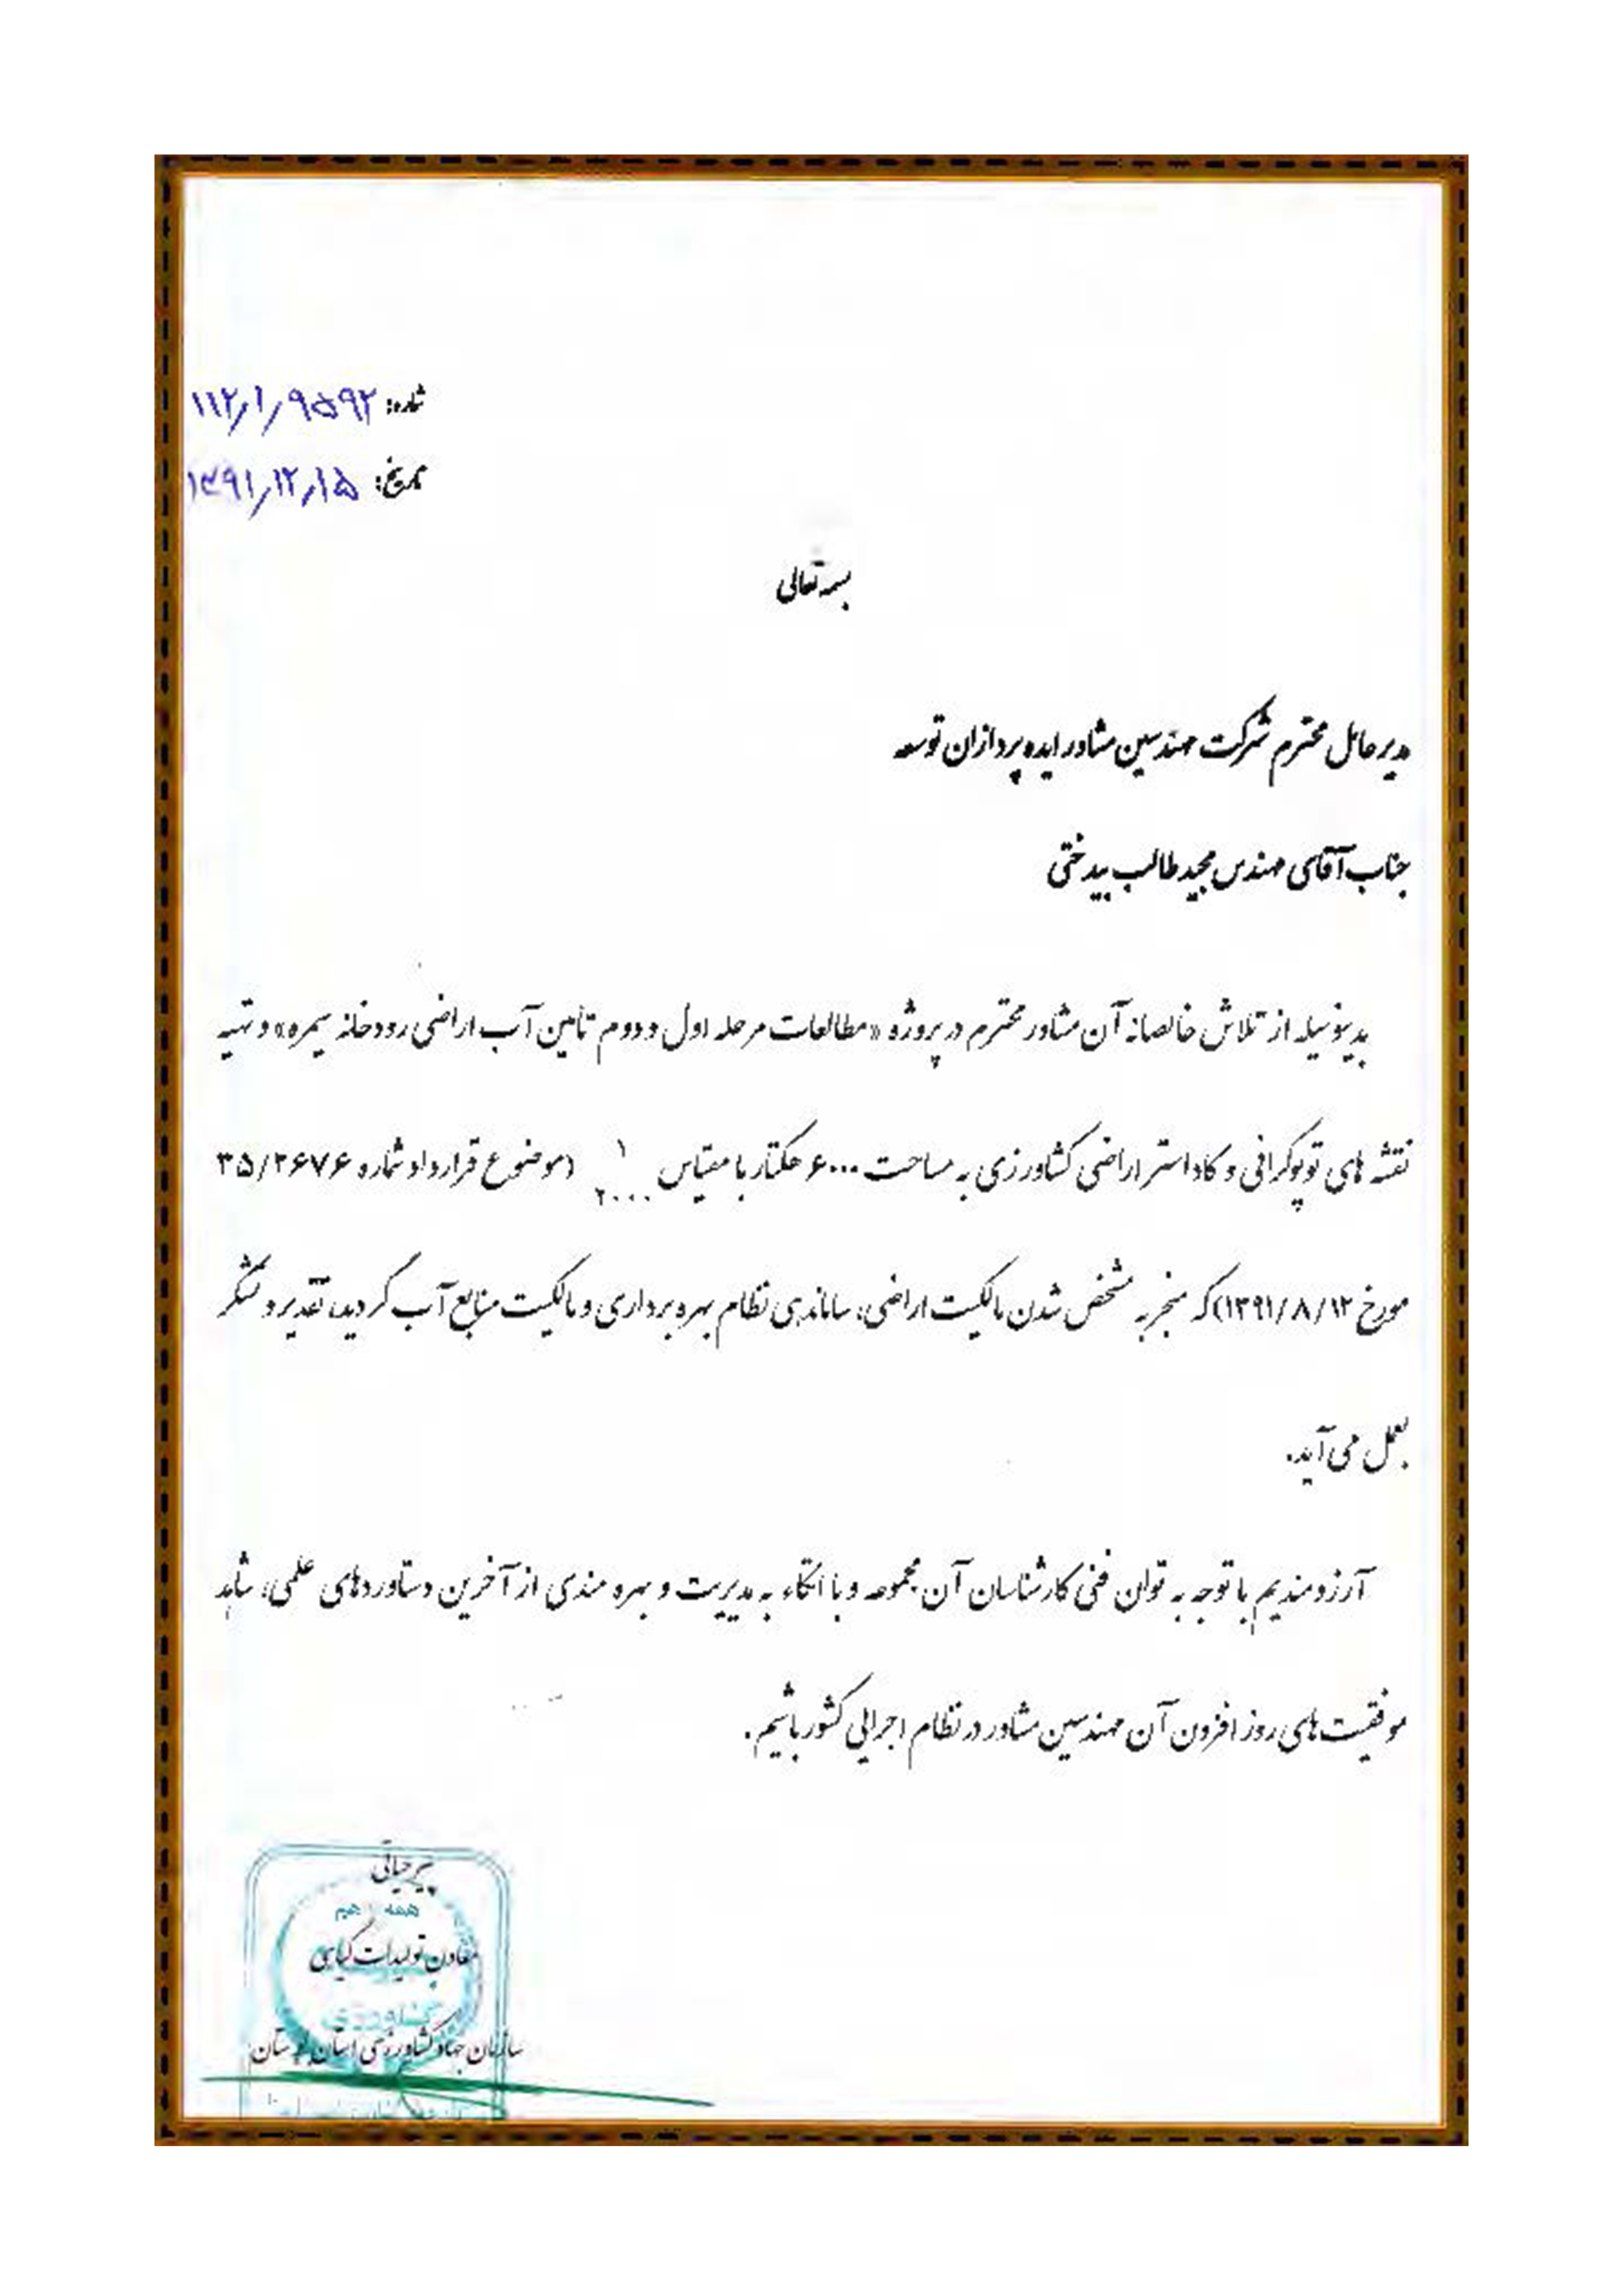 شماره: ۱۱۲/۱/۹۵۹۲
تاریخ: ۱۳۹۱/۱۲/۱۵
بسمه تعالی
مدیرعامل محترم شرکت مهندسین مشاور ایده پردازان توسعه
جناب آقای مهندس مجید طالب بیدختی
بدینوسیله از تلاش خالصانه آن مشاور محترم در پروژه «مطالعات مرحله اول و دوم تأمین آب اراضی رودخانه سیمره» و تهیه
نقشه های توپوگرافی و کاداستر اراضی کشاورزی به مساحت ۶۰۰۰ هکتار با مقیاس ۱/۲۰۰۰ (موضوع قرارداد شماره ۳۵/۲۶۷۶
مورخ ۱۳۹۱/۸/۱۲) که منجر به مشخص شدن مالکیت اراضی، ساماندهی نظام بهره برداری و مالکیت منابع آب گردید، تقدیر و تشکر
بعمل می آید.
آرزومندیم با توجه به توان فنی کارشناسان آن مجموعه و با اتکاء به مدیریت و بهره مندی از آخرین دستاوردهای علمی، شاهد
موفقیت های روز افزون آن مهندسین مشاور در نظام اجرایی کشور باشیم.
پیرحیاتی
همه هم
معاون تولیدات گیاهی
کشاورزی
سازمان جهاد کشاورزی استان لرستان